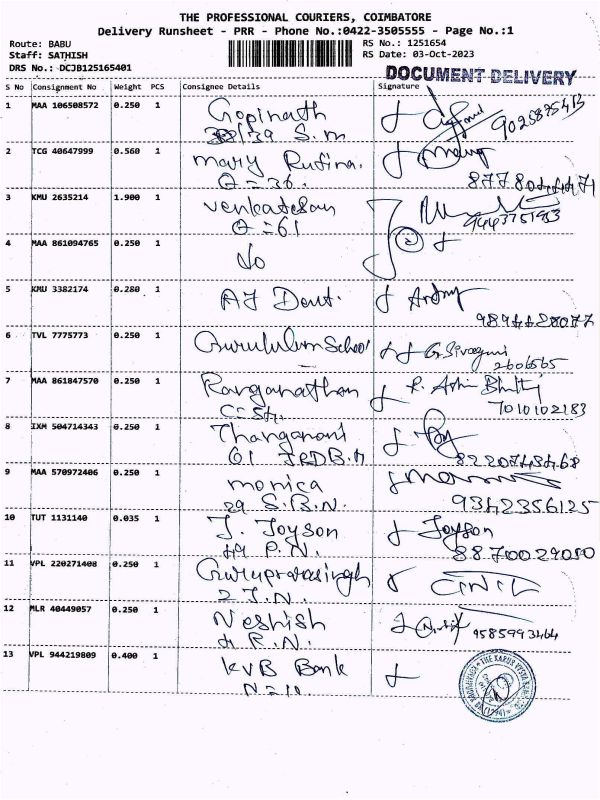 THE PROFESSIONAL COURIERS, COIMBATORE
Delivery Runsheet - PRR - Phone No.:0422-3505555 - Page No.:1
Route: BABU RS No.: 1251654
Staff: SATHISH RS Date: 03-Oct-2023
DRS No.: DCJB125165401 DOCUMENT DELIVERY
S No Consignment No Weight PCS Consignee Details Signature
1 MAA 106508572 0.250 1 Gopinath
39 S.m 9025875413
2 TCG 40647999 0.560 1 Mary Rufina.
Q=36.
3 KMU 2635214 1.900 1 Venkatesan
Q=61 9443751983
4 MAA 861094765 0.250 1
5 KMU 3382174 0.280 1 AJ Dent.
6 TVL 7775773 0.250 1 Gurukulam School
2606565
7 MAA 861847570 0.250 1 Ranganathan
C=54. 7010102183
8 IXM 504714343 0.250 1 Thangamani
61
9 MAA 570972406 0.250 1 monica
29 S.B.N. 9342356125
10 TUT 1131140 0.035 1 J. Joyson Joyson
49 P.N. 8870029080
11 VPL 220271408 0.250 1
2 J.N.
12 MLR 40449057 0.250 1 Neshish
4 R.N. 9585993464
13 VPL 944219809 0.400 1 KVB Bank